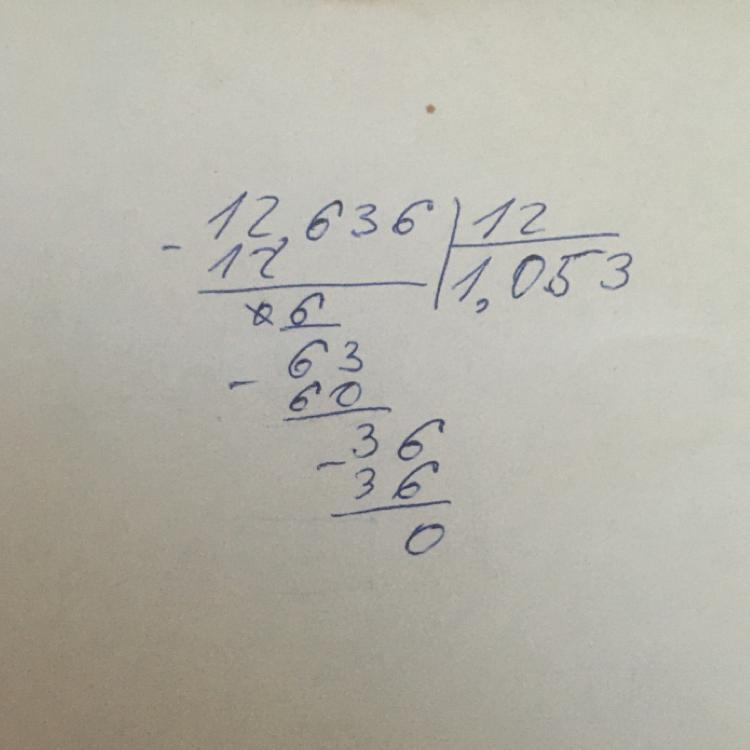 - 12,636 | 12
12 | 1,053
6
63
- 60
- 36
36
0